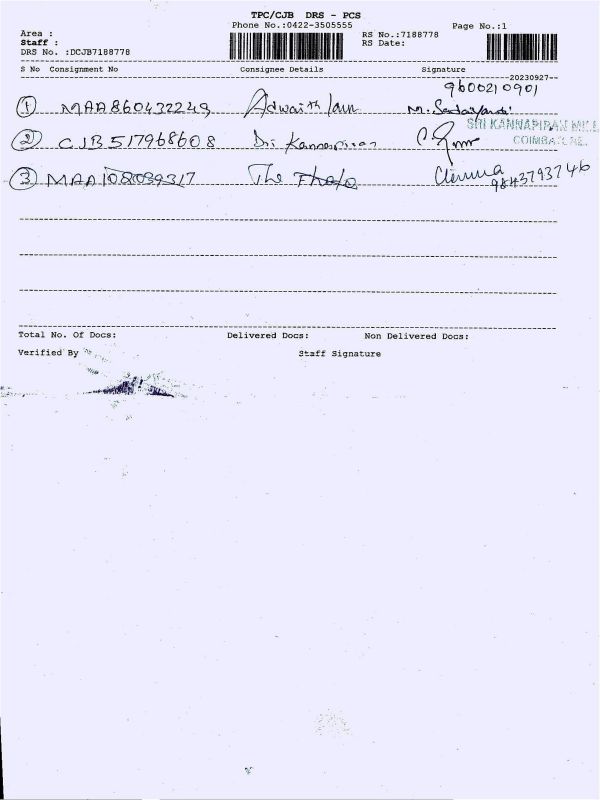 TPC/CJB DRS - PCS
Phone No.:0422-3505555
Page No.:1
Area :
RS No.:7188778
Staff :
RS Date:
DRS No. :DCJB7188778
S No Consignment No Consignee Details Signature
20230927
9600210901
1 MAA860432249 Adwaith M.
2 CJB517968608 Sri Kannapiran
SRI KANNAPIRAN MILL
COIMBATORE
3 MAA108039317 The
9843793746
Total No. Of Docs: Delivered Docs: Non Delivered Docs:
Verified By Staff Signature